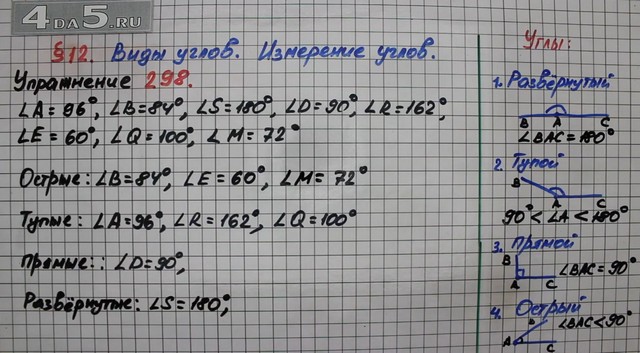 4DA5.RU
§12. Виды углов. Измерение углов.
Упражнение 298.
∠A=96°, ∠B=84°, ∠S=180°, ∠D=90°, ∠R=162°,
∠E=60°, ∠Q=100°, ∠M=72°
Острые: ∠B=84°, ∠E=60°, ∠M=72°
Тупые: ∠A=96°, ∠R=162°, ∠Q=100°
Прямые:: ∠D=90°,
Развёрнутые: ∠S=180°,
Углы:
1. Развёрнутый
B A C
∠BAC=180°
2. Тупой
B
A C
90°<∠A<180°
3. Прямой
B
∠BAC=90°
A C
4. Острый
B ∠BAC<90°
A C